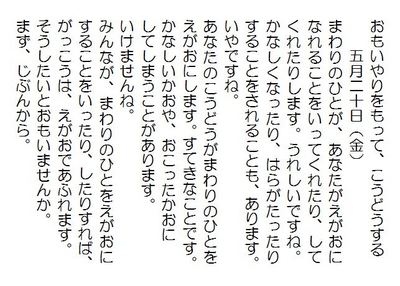 おもいやりをもって、こうどうする
五月二十日(金)
まわりのひとが、あなたがえがおに
なれることをいってくれたり、して
くれたりします。うれしいですね。
かなしくなったり、はらがたったり
することをされることも、あります。
いやですね。
あなたのこうどうがまわりのひとを
えがおにします。すてきなことです。
かなしいかおや、おこったかおに
してしまうことがあります。
いけませんね。
みんなが、まわりのひとをえがおに
することをいったり、したりすれば、
がっこうは、えがおであふれます。
そうしたいとおもいませんか。
まず、じぶんから。